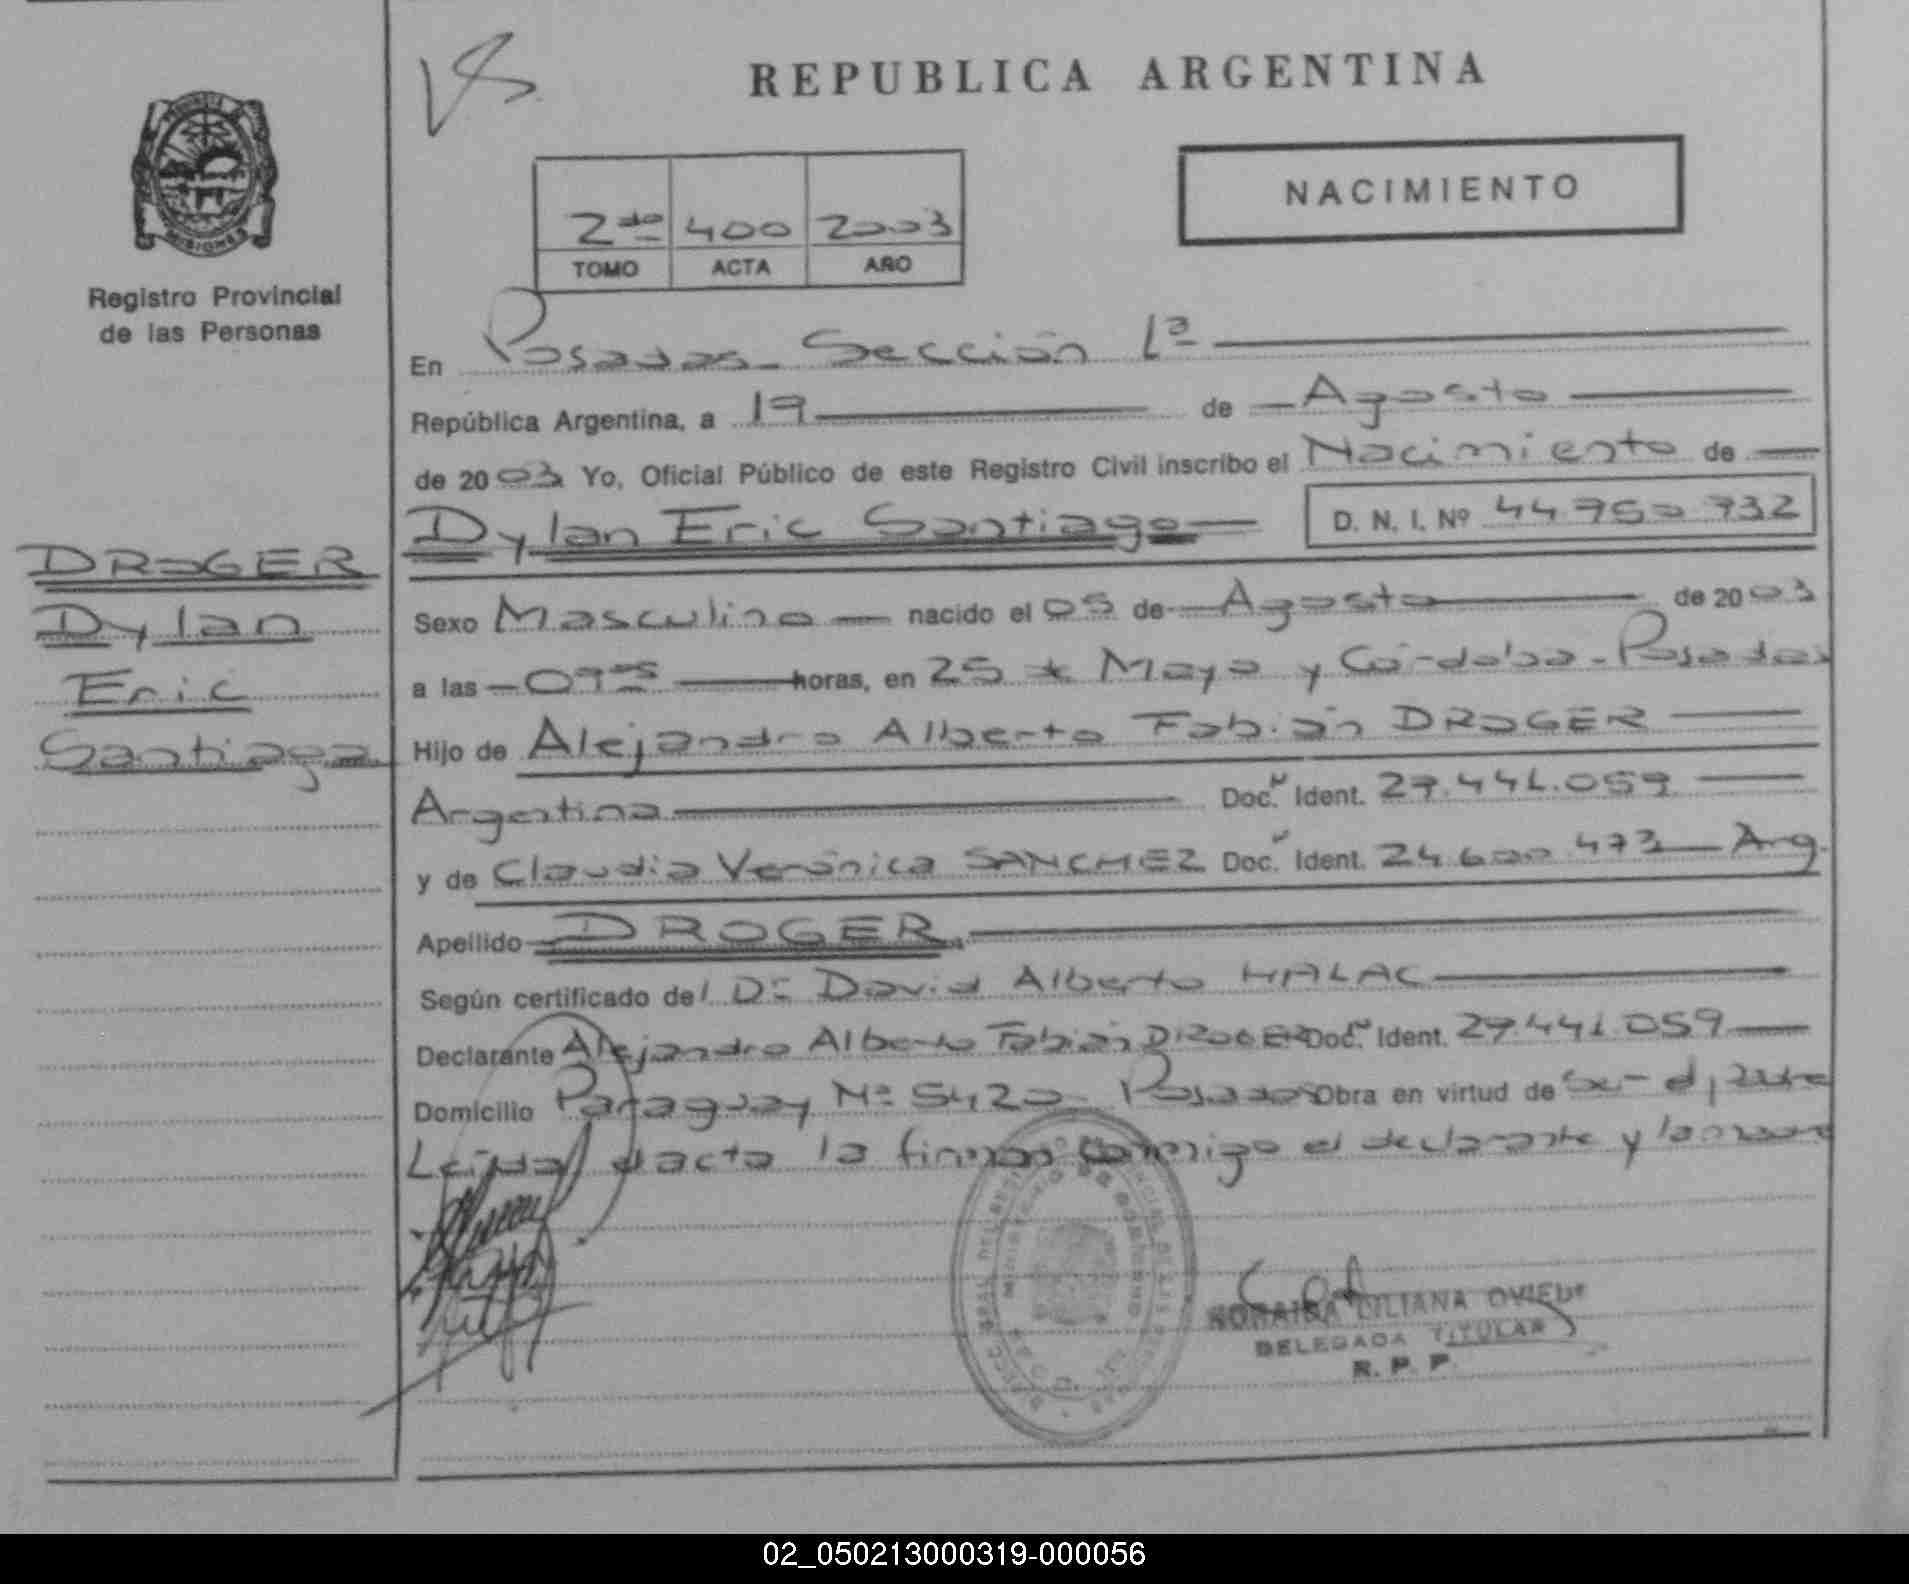 REPUBLICA ARGENTINA
NACIMIENTO
2do 400 2003
TOMO ACTA AÑO
MISIONES
Registro Provincial
de las Personas
DROGER
Dylan
Eric
Santiago
En Posadas - Sección 1ª
República Argentina, a 19 de Agosto
de 2003 Yo, Oficial Público de este Registro Civil inscribo el Nacimiento de
Dylan Eric Santiago D. N. I. Nº 44 750 732
Sexo Masculino nacido el 05 de Agosto de 2003
a las 09 horas, en 25 de Mayo y Córdoba - Posadas
Hijo de Alejandro Alberto Fabián DROGER
Argentina Doc. Ident. 27.441.059
y de Claudia Verónica SANCHEZ Doc. Ident. 24.600 473 Arg.
Apellido DROGER
Según certificado del Dr David Alberto HALAC
Declarante Alejandro Alberto Fabián DROGER Doc. Ident. 27.441.059
Domicilio Paraguay Nº 5420 Posadas Obra en virtud de
Leída el acta la firman conmigo el declarante y la
LILIANA OVIEDO
DELEGADA TITULAR
R. P. P.
02_050213000319-000056